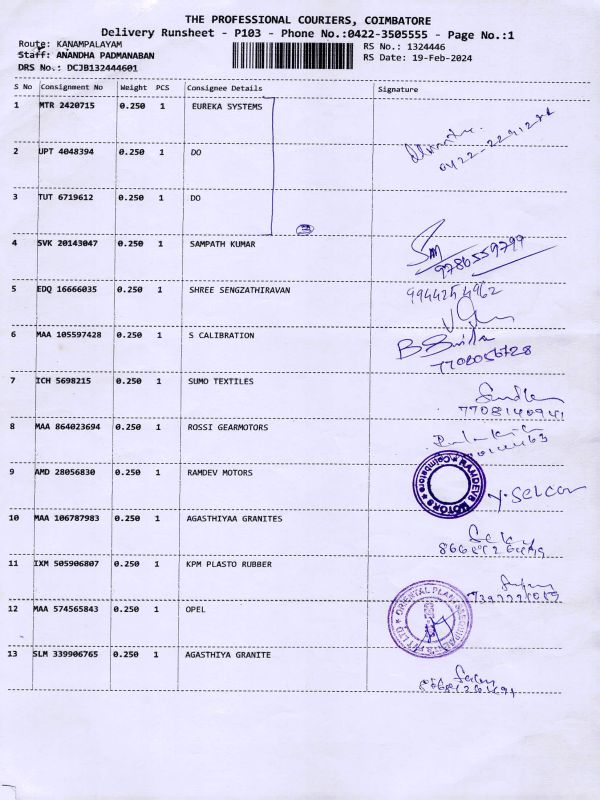 THE PROFESSIONAL COURIERS, COIMBATORE
Delivery Runsheet - P103 - Phone No.:0422-3505555 - Page No.:1
Route: KANAMPALAYAM
RS No.: 1324446
Staff: ANANDHA PADMANABAN
RS Date: 19-Feb-2024
DRS No.: DCJB132444601
S No Consignment No Weight PCS Consignee Details Signature
1 MTR 2420715 0.250 1 EUREKA SYSTEMS
2 UPT 4048394 0.250 1 DO
3 TUT 6719612 0.250 1 DO
3
4 SVK 20143047 0.250 1 SAMPATH KUMAR
9786559799
5 EDQ 16666035 0.250 1 SHREE SENGZATHIRAVAN
9944254962
6 MAA 105597428 0.250 1 S CALIBRATION
7708056728
7 ICH 5698215 0.250 1 SUMO TEXTILES
7708140941
8 MAA 864023694 0.250 1 ROSSI GEARMOTORS
9 AMD 28056830 0.250 1 RAMDEV MOTORS
RAMDEVS MOTORS
Coimbatore
10 MAA 106787983 0.250 1 AGASTHIYAA GRANITES
11 IXM 505906807 0.250 1 KPM PLASTO RUBBER
12 MAA 574565843 0.250 1 OPEL
13 SLM 339906765 0.250 1 AGASTHIYA GRANITE